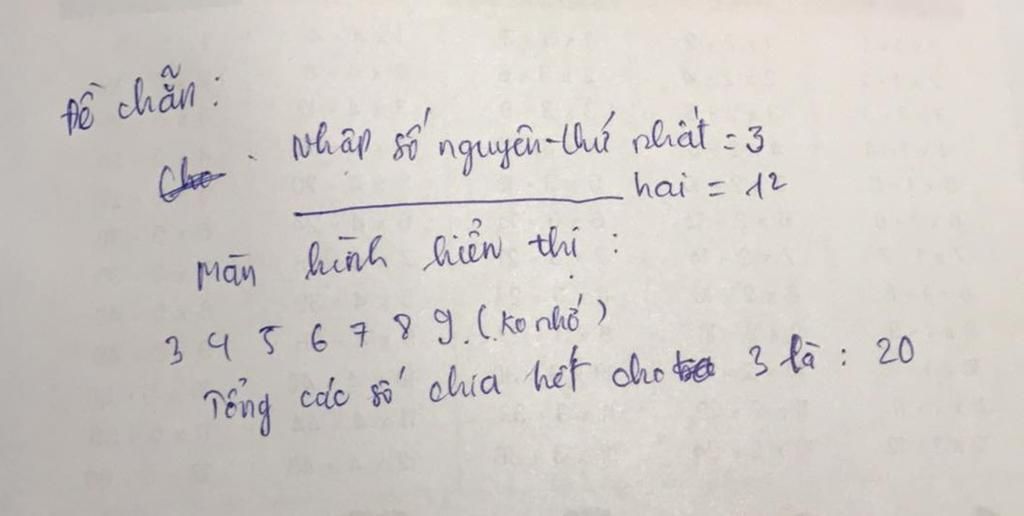 Đề chẵn:
Nhập số nguyên thứ nhất = 3
hai = 12
Màn hình hiển thị:
3 4 5 6 7 8 9. (ko nhớ)
Tổng các số chia hết cho 3 là: 20